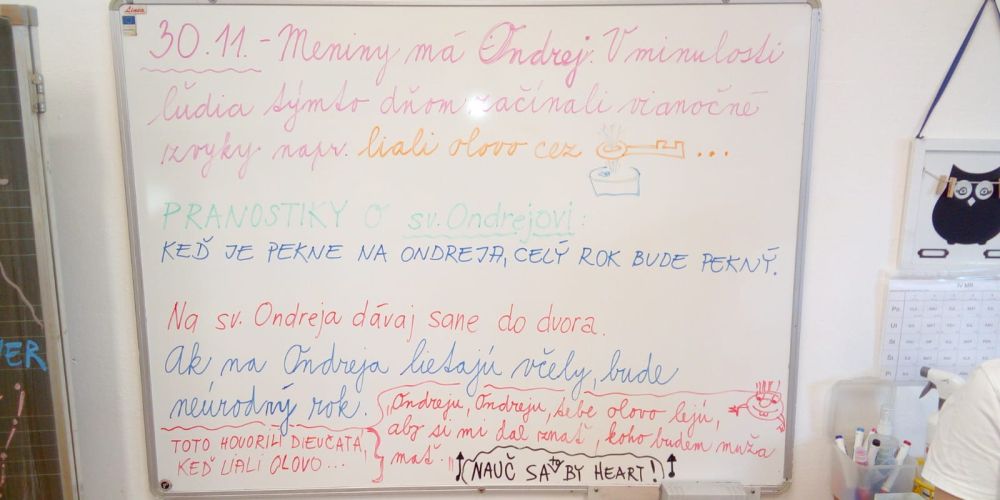 Linea
30.11. - Meniny má Ondrej. V minulosti
ľudia týmto dňom začínali vianočné
zvyky. napr. liali olovo cez ...
PRANOSTIKY O sv. Ondrejovi:
KEĎ JE PEKNE NA ONDREJA, CELÝ ROK BUDE PEKNÝ.
Na sv. Ondreja dávaj sane do dvora.
Ak na Ondreja lietajú včely, bude
neúrodný rok.
„Ondreju, Ondreju, tebe olovo lejú,
aby si mi dal znať, koho budem muža
mať."
TOTO HOVORILI DIEVČATÁ,
KEĎ LIALI OLOVO...
NAUČ SA to BY HEART!
ER
Po
Ut
St
Št